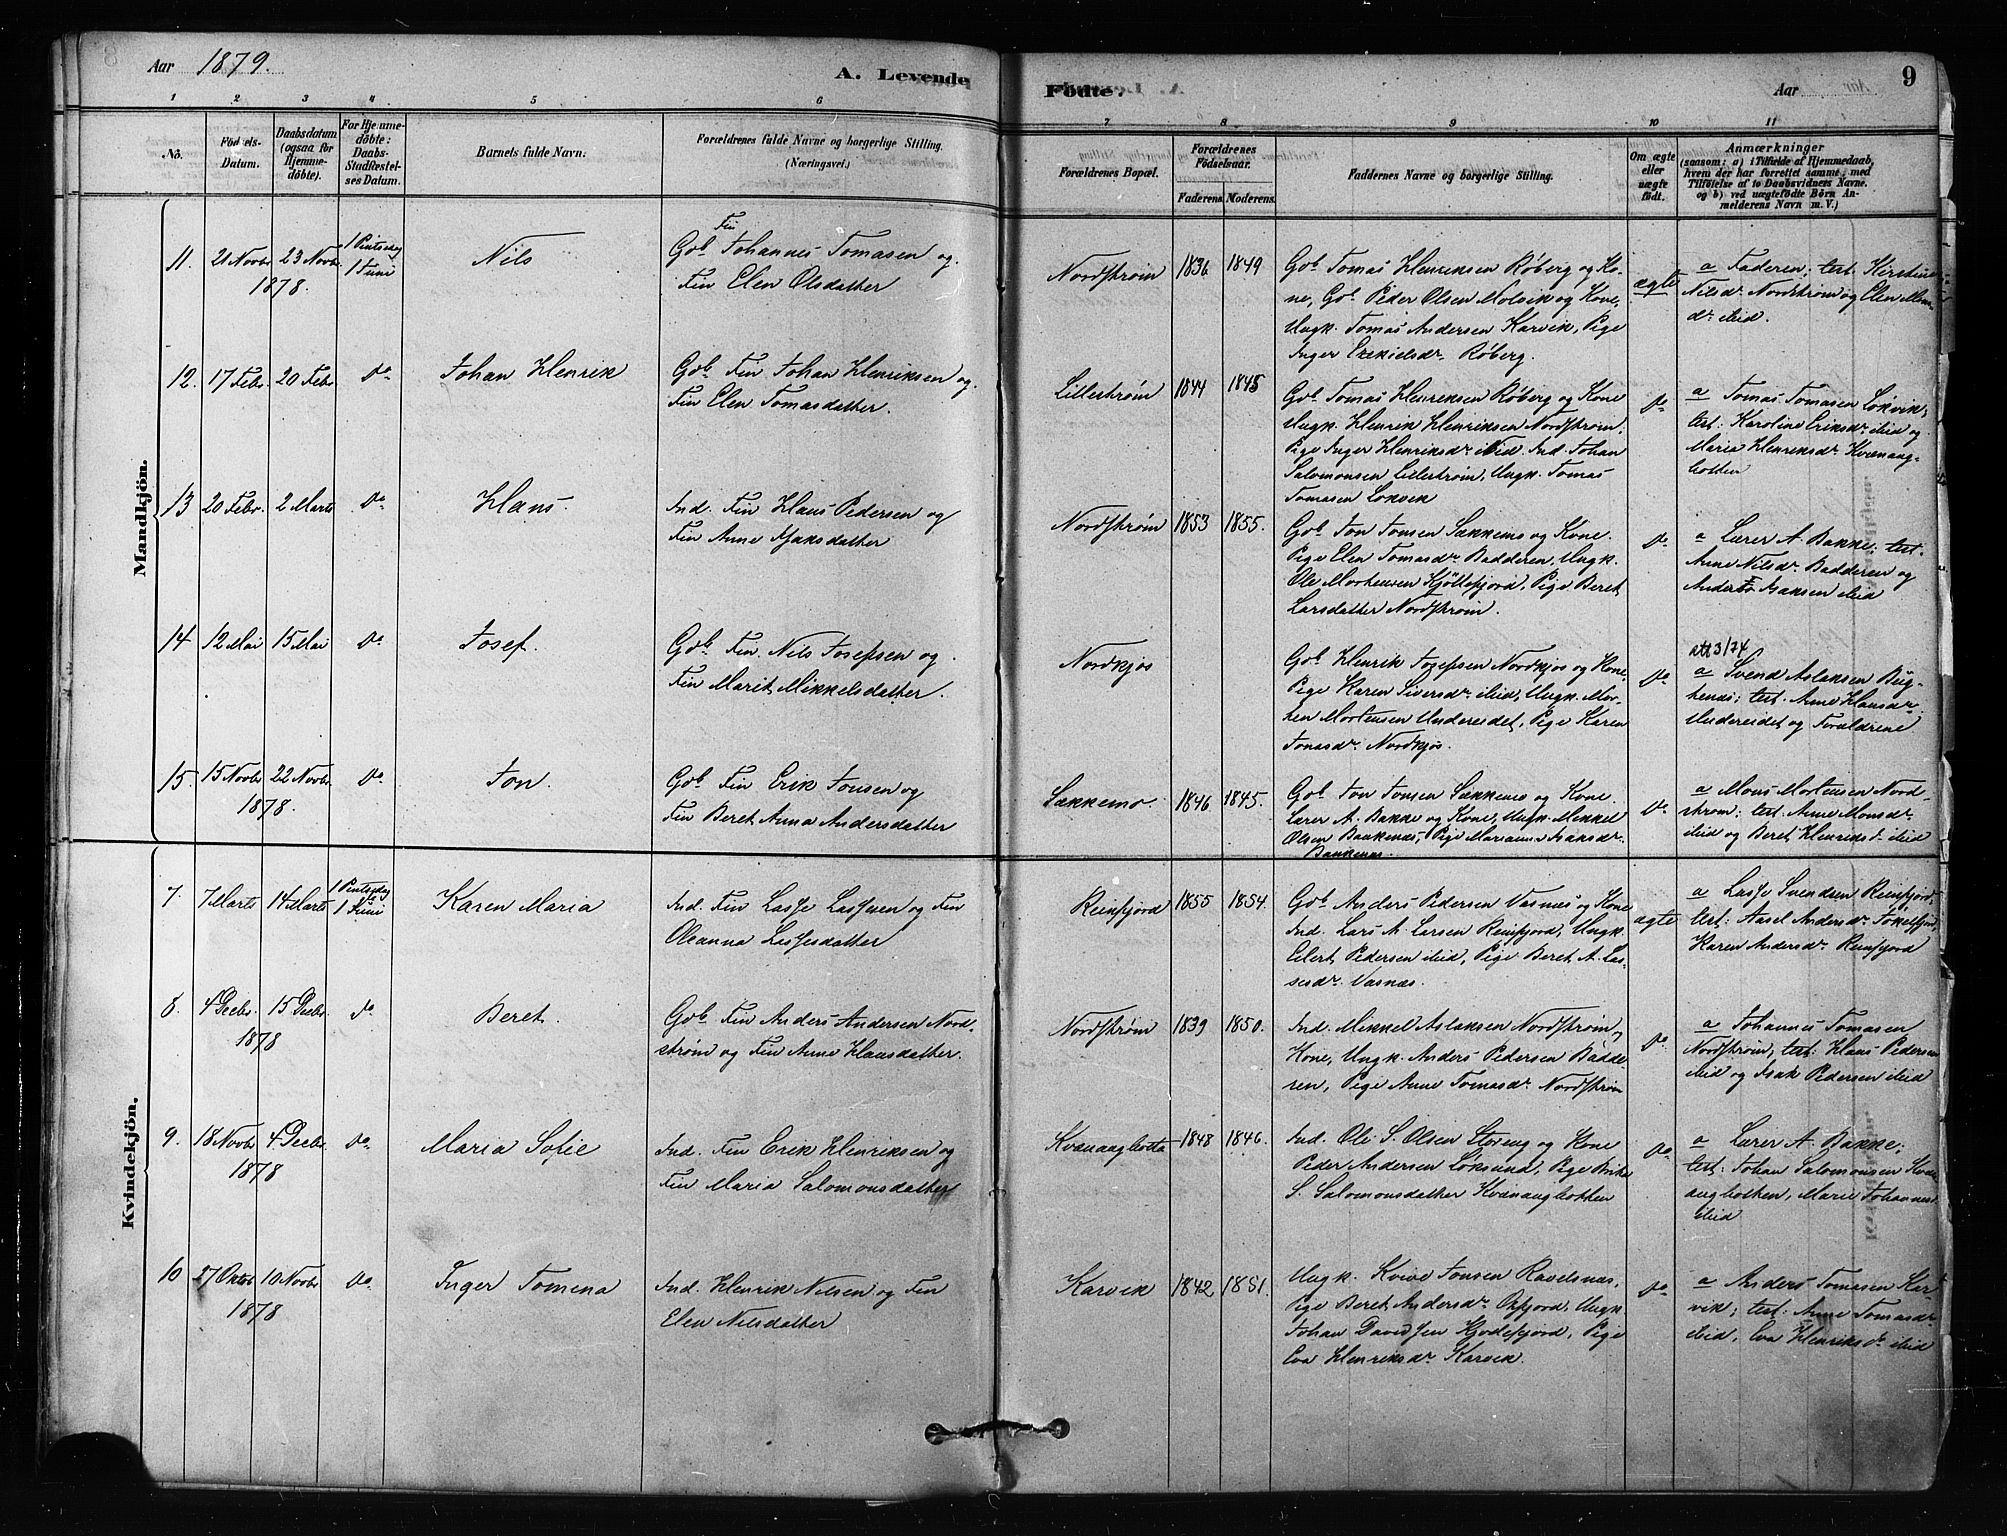 Aar 1879.
A. Levende
Födte.
Aar
9
1 2 3 4 5 6 7 8 9 10 11
No.
Födsels-
Datum.
Daabsdatum
(ogsaa for
Hjemme-
döbte).
For Hjemme-
döbte:
Daabs-
Stadfæstel-
ses Datum.
Barnets fulde Navn.
Forældrenes fulde Navne og borgerlige Stilling.
(Næringsvei.)
Forældrenes Bopæl.
Forældrenes
Födselsaar.
Faderens Moderens.
Faddernes Navne og borgerlige Stilling.
Om ægte
eller
uægte
födt.
Anmærkninger
(saasom: a) i Tilfælde af Hjemmedaab,
hvem der har forrettet samme, med
Tilföielse af to Daabsvidners Navne.
og b) ved uægtefödte Börn An-
melderens Navn m. V.)
Mandkjön.
11. 21 Novbr 23 Novbr
1878.
1 Pintsedag
1 Juni
Nils
Fin
Gbr Johannes Tomasen og
Fin Elen Olsdatter
Nordstrøm 1836 1849
Gbr Tomas Henriksen Røberg og Ko-
ne, Gbr Peder Olsen Molvik og Kone,
Ungk. Tomas Andersen Karvik, Pige
Inger Ezekielsdr Røberg.
ægte
a Faderen; test. Kirstine
Nilsdr Nordstrøm og Elen Mons-
dr ibid.
12. 17 Febr 20 Febr do
Johan Henrik
Gbr Fin Johan Henriksen og
Fin Elen Tomasdatter.
Lillestrøm 1844 1848
Gbr Tomas Henriksen Røberg og Kone
Ungk. Henrik Henriksen Nordstrøm,
Pige Inger Henriksdr ibid. Ind. Johan
Salomonsen Lillestrøm, Ungk. Tomas
Tomasen Løkvik
do
a Tomas Tomasen Løkvik;
test: Karoline Eriksdr ibid og
Maria Henriksdr Kvænang-
botten
13 20 Febr. 2 Marts do
Hans.
Ind. Fin Hans Pedersen og
Fin Anne Isaksdatter
Nordstrøm 1853 1855.
Gbr Jon Jonsen Sækkemo og Kone.
Pige Elen Tomasdr Badderen, Ungk.
Ole Mortensen Kjöllefjord, Pige Beret
Larsdatter Nordstrøm.
do
a Lærer A. Bakke; test.
Anne Nilsdr Badderen og
Anders Isaksen ibid
14 12 Mai 15 Mai do
Josef.
Gbr Fin. Nils Josefsen og
Fin Marit Mikkelsdatter.
Nordkjos
Gbr Henrik Josefsen Nordkjos og Kone,
Pige Karen Siversdr ibid, Ungk. Mor-
ten Mortensen Undereidet, Pige Karen
Jonasdr Nordkjos.
do
att 3/74
a Svend Aslaksen Bug-
tenes; test. Anne Hansdr
Undereidet og Forældrene
15. 15 Novbr 22 Novbr
1878.
do
Jon.
Gbr Fin Erik Jonsen og
Fin Beret Anna Andersdatter
Sækkemo. 1846 1845.
Gbr Jon Jonsen Sækkemo og Kone.
Lærer A. Bakke og Kone, Ungk. Mikkel
Olsen Baukenæs, Pige Mariane Isaksdr.
Baukenæs.
do
a Mons Mortensen Nord-
strøm; test. Anne Monsdr
ibid og Beret Henriksdr ibid
Kvindekjön.
7. 7 Marts 14 Marts
1 Pintsedag
1 Juni
Karen Maria
Ind. Fin Lasse Lassesen og Fin
Oleanna Lassesdatter
Reinfjord 1855 1854.
Gbr Anders Pedersen Vasnæs og Kone
Ind. Lars A. Larsen Reinfjord, Ungk.
Eilert Pedersen ibid, Pige Beret A. Las-
sesdr. Vasnæs.
ægte
a Lasse Svendsen Reinfjord,
test: Aasel Andersdr Jøkelfjord,
Karen Andersdr. Reinfjord
8. 4 Decbr. 15 Decbr
1878
do
Beret.
Gbr Fin Anders Andersen Nord-
strøm og Fin Anne Hansdatter.
Nordstrøm 1839 1850.
Ind. Mikkel Aslaksen Nordstrøm,
Kone, Ungk. Anders Pedersen Badde-
ren, Pige Anne Tomasdr. Nordstrøm
do
a Johannes Tomasen
Nordstrøm; test: Hans Pedersen
ibid og Isak Pedersen ibid
9. 18 Novbr 4 Decbr.
1878
do
Maria Sofie
Ind. Fin Erik Henriksen og
Fin Maria Salomonsdatter
Kvænangbotten 1848 1846.
Ind. Ole S. Olsen Storeng og Kone
Peder Andersen Løksund, Pige Brita
S. Salomonsdatter Kvænangbotten
do
a Lærer A. Bakke;
test: Johan Salomonsen Kvæn-
angbotten, Marie Johannesd.
ibid
10 27 Oktob 10 Novbr
1878
do
Inger Tomina
Ind. Henrik Nilsen og Fin
Elen Nilsdatter
Karvik 1842 1851.
Ungk. Kvive Jonsen Ravelsnæs.
Pige Beret Andersdr. Oxfjord, Ungk.
Johan Davidsen Kjødefjord, Pige
Eva Henriksdr. Karvik.
do
a Anders Tomasen Kar-
vik; test: Anne Tomasdr
ibid, Eva Henriksdr ibid